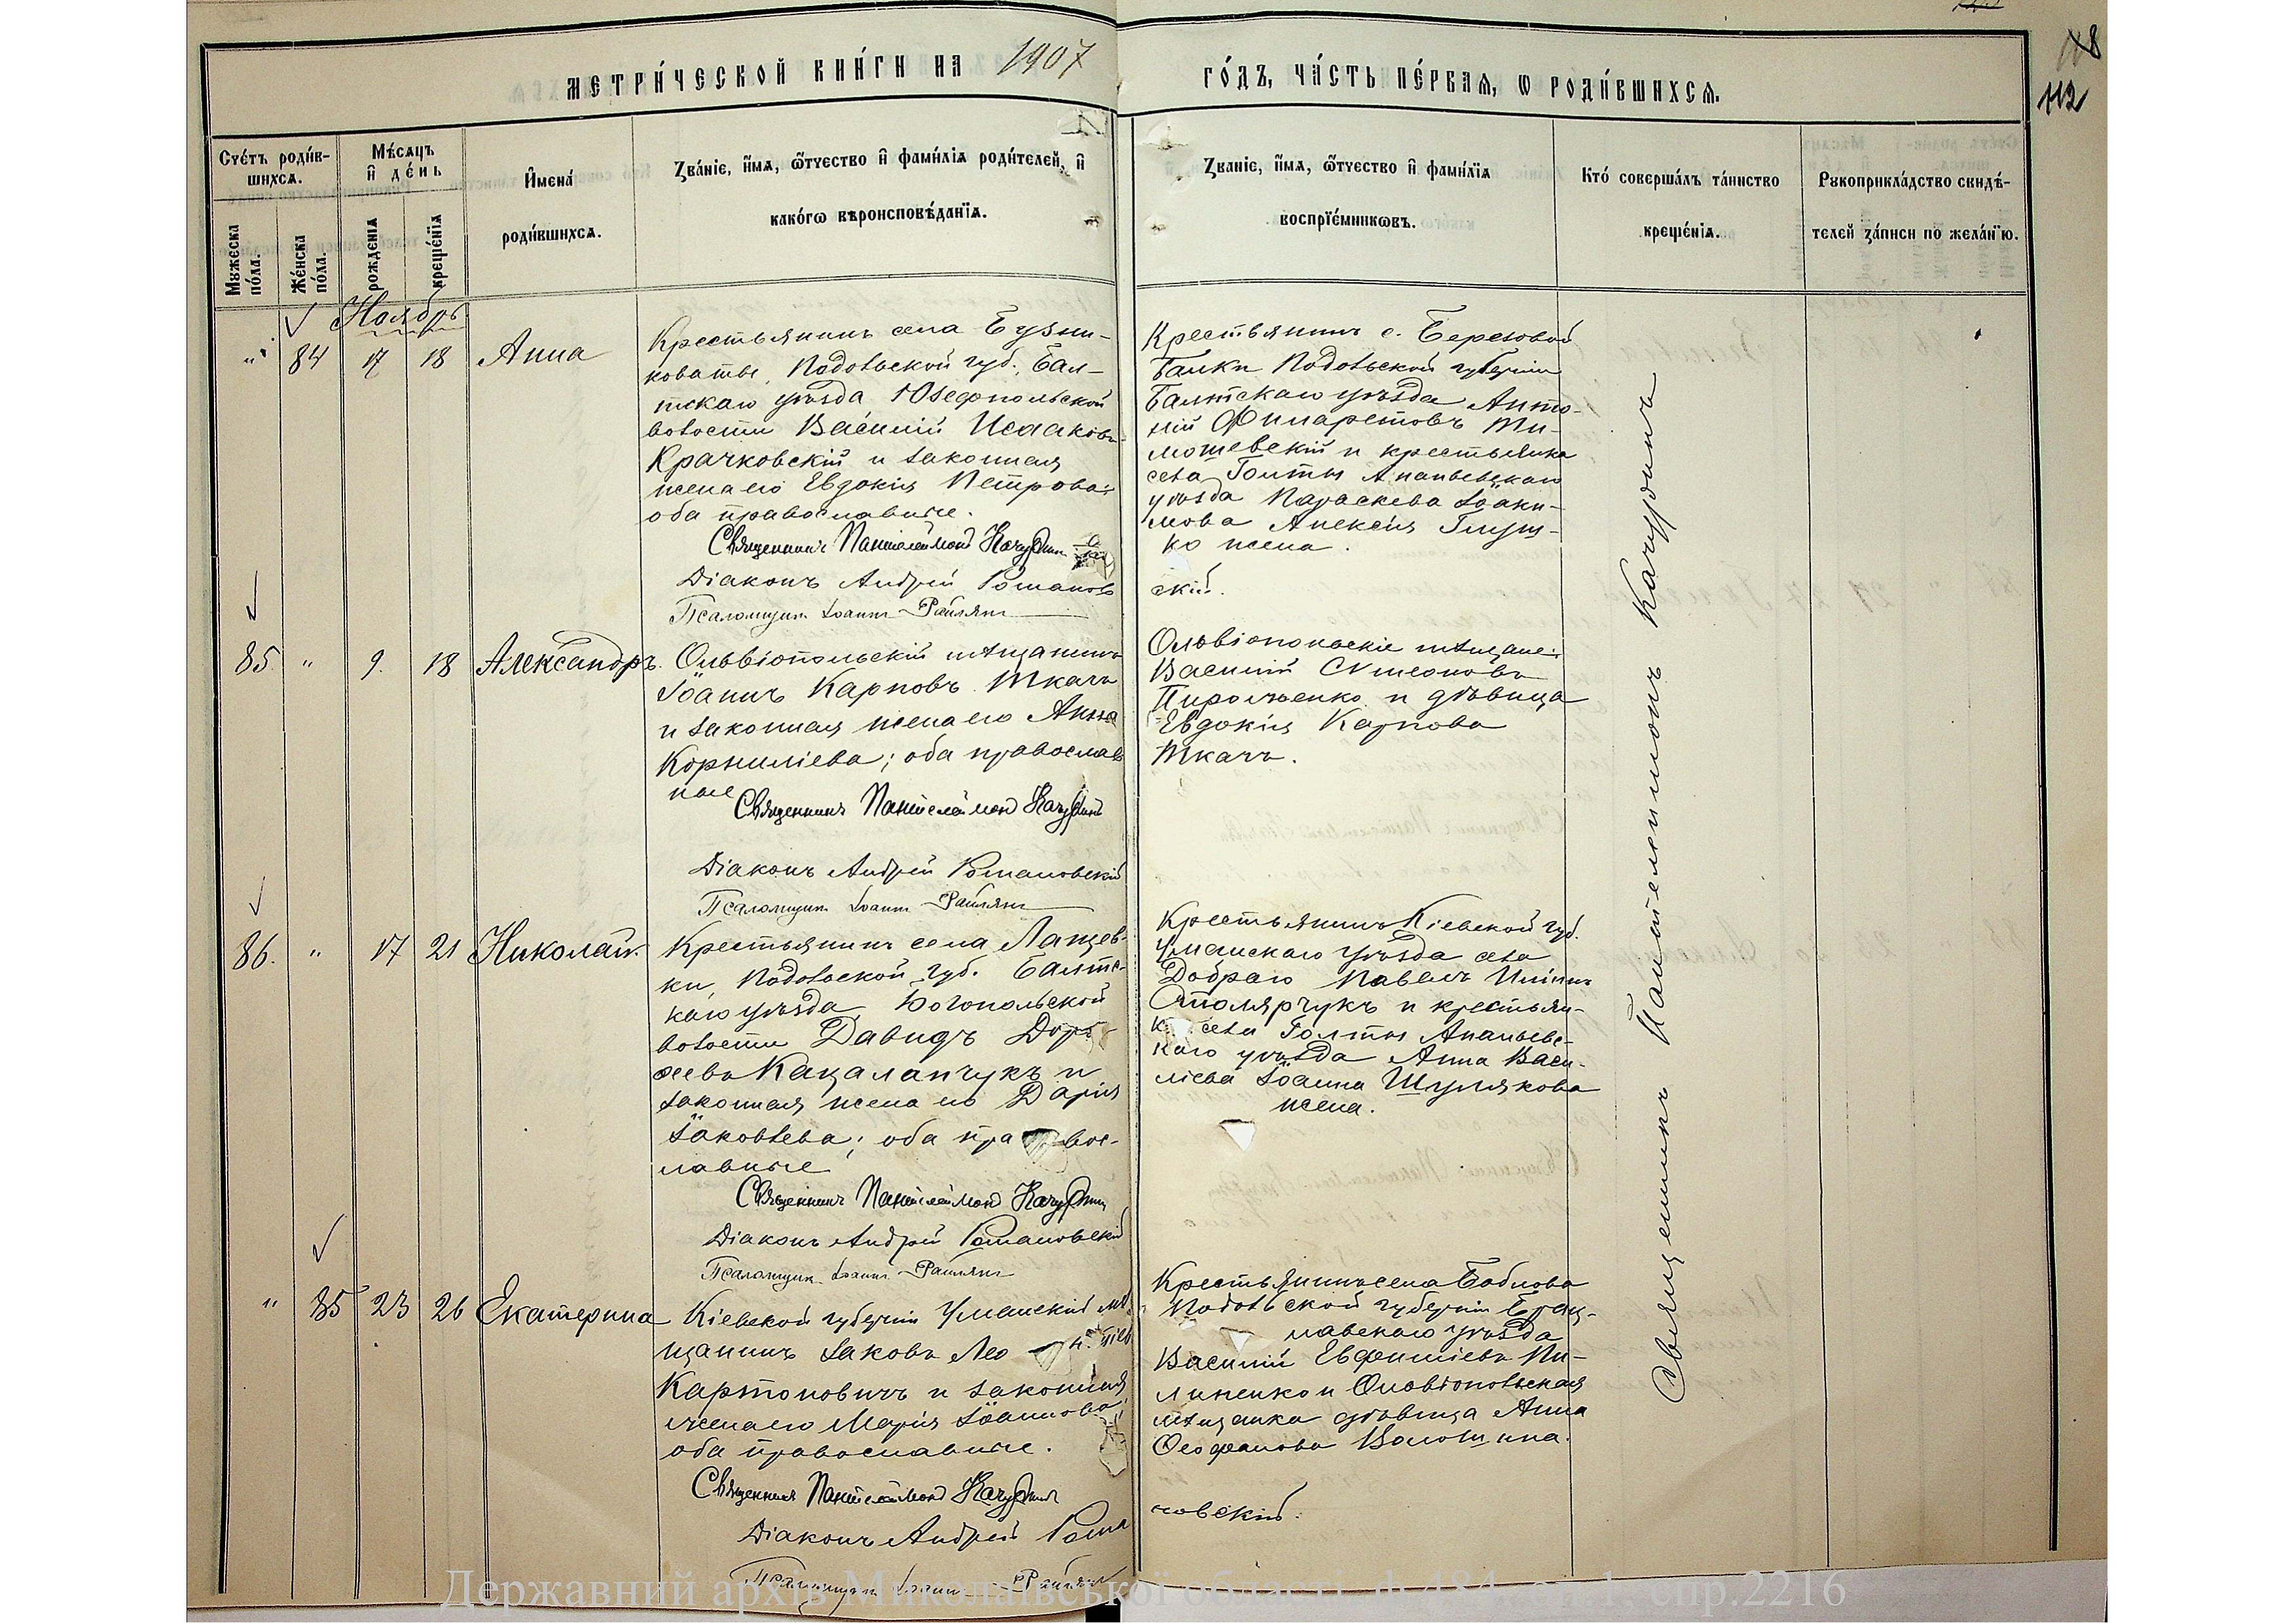 МЕТРИ́ЧЕСКОЙ КНИ́ГИ НА 1907
ГО́ДЪ, ЧА́СТЬ ПЕ́РВАѦ, Ѡ РОДИ́ВШИХСѦ.
112
Сче́тъ роди́в-
шихсѧ.
Мѣ́сѧцъ
и҆ де́нь
И҆мена̀
роди́вшихсѧ.
Зва́ніе, и҆́мѧ, ѻ҆́тчество и҆ фами́лїѧ роди́телей, и҆
како́гѡ вѣроисповѣ́данїѧ.
Зва́ніе, и҆́мѧ, ѻ҆́тчество и҆ фами́лїѧ
воспрїе́мникѡвъ.
Кто̀ соверша́лъ та́инство
креще́нїѧ.
Рꙋкоприкла́дство свидѣ́-
телей за́писи по жела́нїю.
Мꙋжеска по́ла.
Же́нска по́ла.
рожде́нїѧ
креще́нїѧ
Ноябрь
" 84 17 18 Анна
Крестьянинъ села Бузни-
коватые, Подольской губ., Бал-
тскаго уѣзда Юзефпольской
волости Василій Исааковъ
Крачковскій и законная
жена его Евдокія Петрова;
оба православные.
Священникъ Пантелеймонъ Качурдинъ
Діаконъ Андрей Романов
Псаломщик Іоанн
Крестьянинъ с. Березовой
Балки Подольской губерніи
Балтскаго уѣзда Анто-
ній Филаретовъ Ти-
мошевскій и крестьянка
села Голты Ананьевскаго
уѣзда Параскева Іоаки-
мова Алексія Глущ-
ко жена.
скій.
85 " 9. 18 Александръ.
Ольвіопольскій мѣщанинъ
Іоаннъ Карповъ Ткачъ
и законная жена его Анна
Корниліева; оба православ
ные
Священникъ Пантелеймонъ Качурдинъ
Діаконъ Андрей Романовскій
Псаломщик Іоанн
Ольвіопольскіе мѣщане:
Василій Сѵмеоновъ
и дѣвица
Евдокія Карпова
Ткачъ.
86. " 17 21 Николай.
Крестьянинъ села Лащев-
ки, Подольской губ. Балтс-
каго уѣзда, Богопольской
волости Давидъ
Кацаланчукъ и
законная жена его Дарія
Іаковлева; оба правос-
лавные
Священникъ Пантелеймонъ Качурдинъ
Діаконъ Андрей Романовскій
Псаломщик Іоанн
Крестьянинъ Кіевской губ.
Уманскаго уѣзда села
Добраго Павелъ Иліинъ
Столярчукъ и крестьян-
ка села Голты Ананьевс-
каго уѣзда Анна Васи-
ліева Іоанна Шулякова
жена.
" 85 23 26 Екатерина
Кіевской губерніи Уманскій мѣ-
щанинъ Іаковъ
Картоповичъ и законная
жена его Марія Іоаннова;
оба православные.
Священникъ Пантелеймонъ Качурдинъ
Діаконъ Андрей Рома
Псаломщик Іоанн
Крестьянинъ села
Подольской губерніи Брац-
лавскаго уѣзда
Василій Евфиміевъ Пи-
липенко и Ольвіопольская
мѣщанка дѣвица Анна
Ѳеофанова Волошина.
новскій.
Священникъ Пантелеимонъ Качурдинъ
Державний архів Миколаївської області, ф.484, оп.1, спр.2216